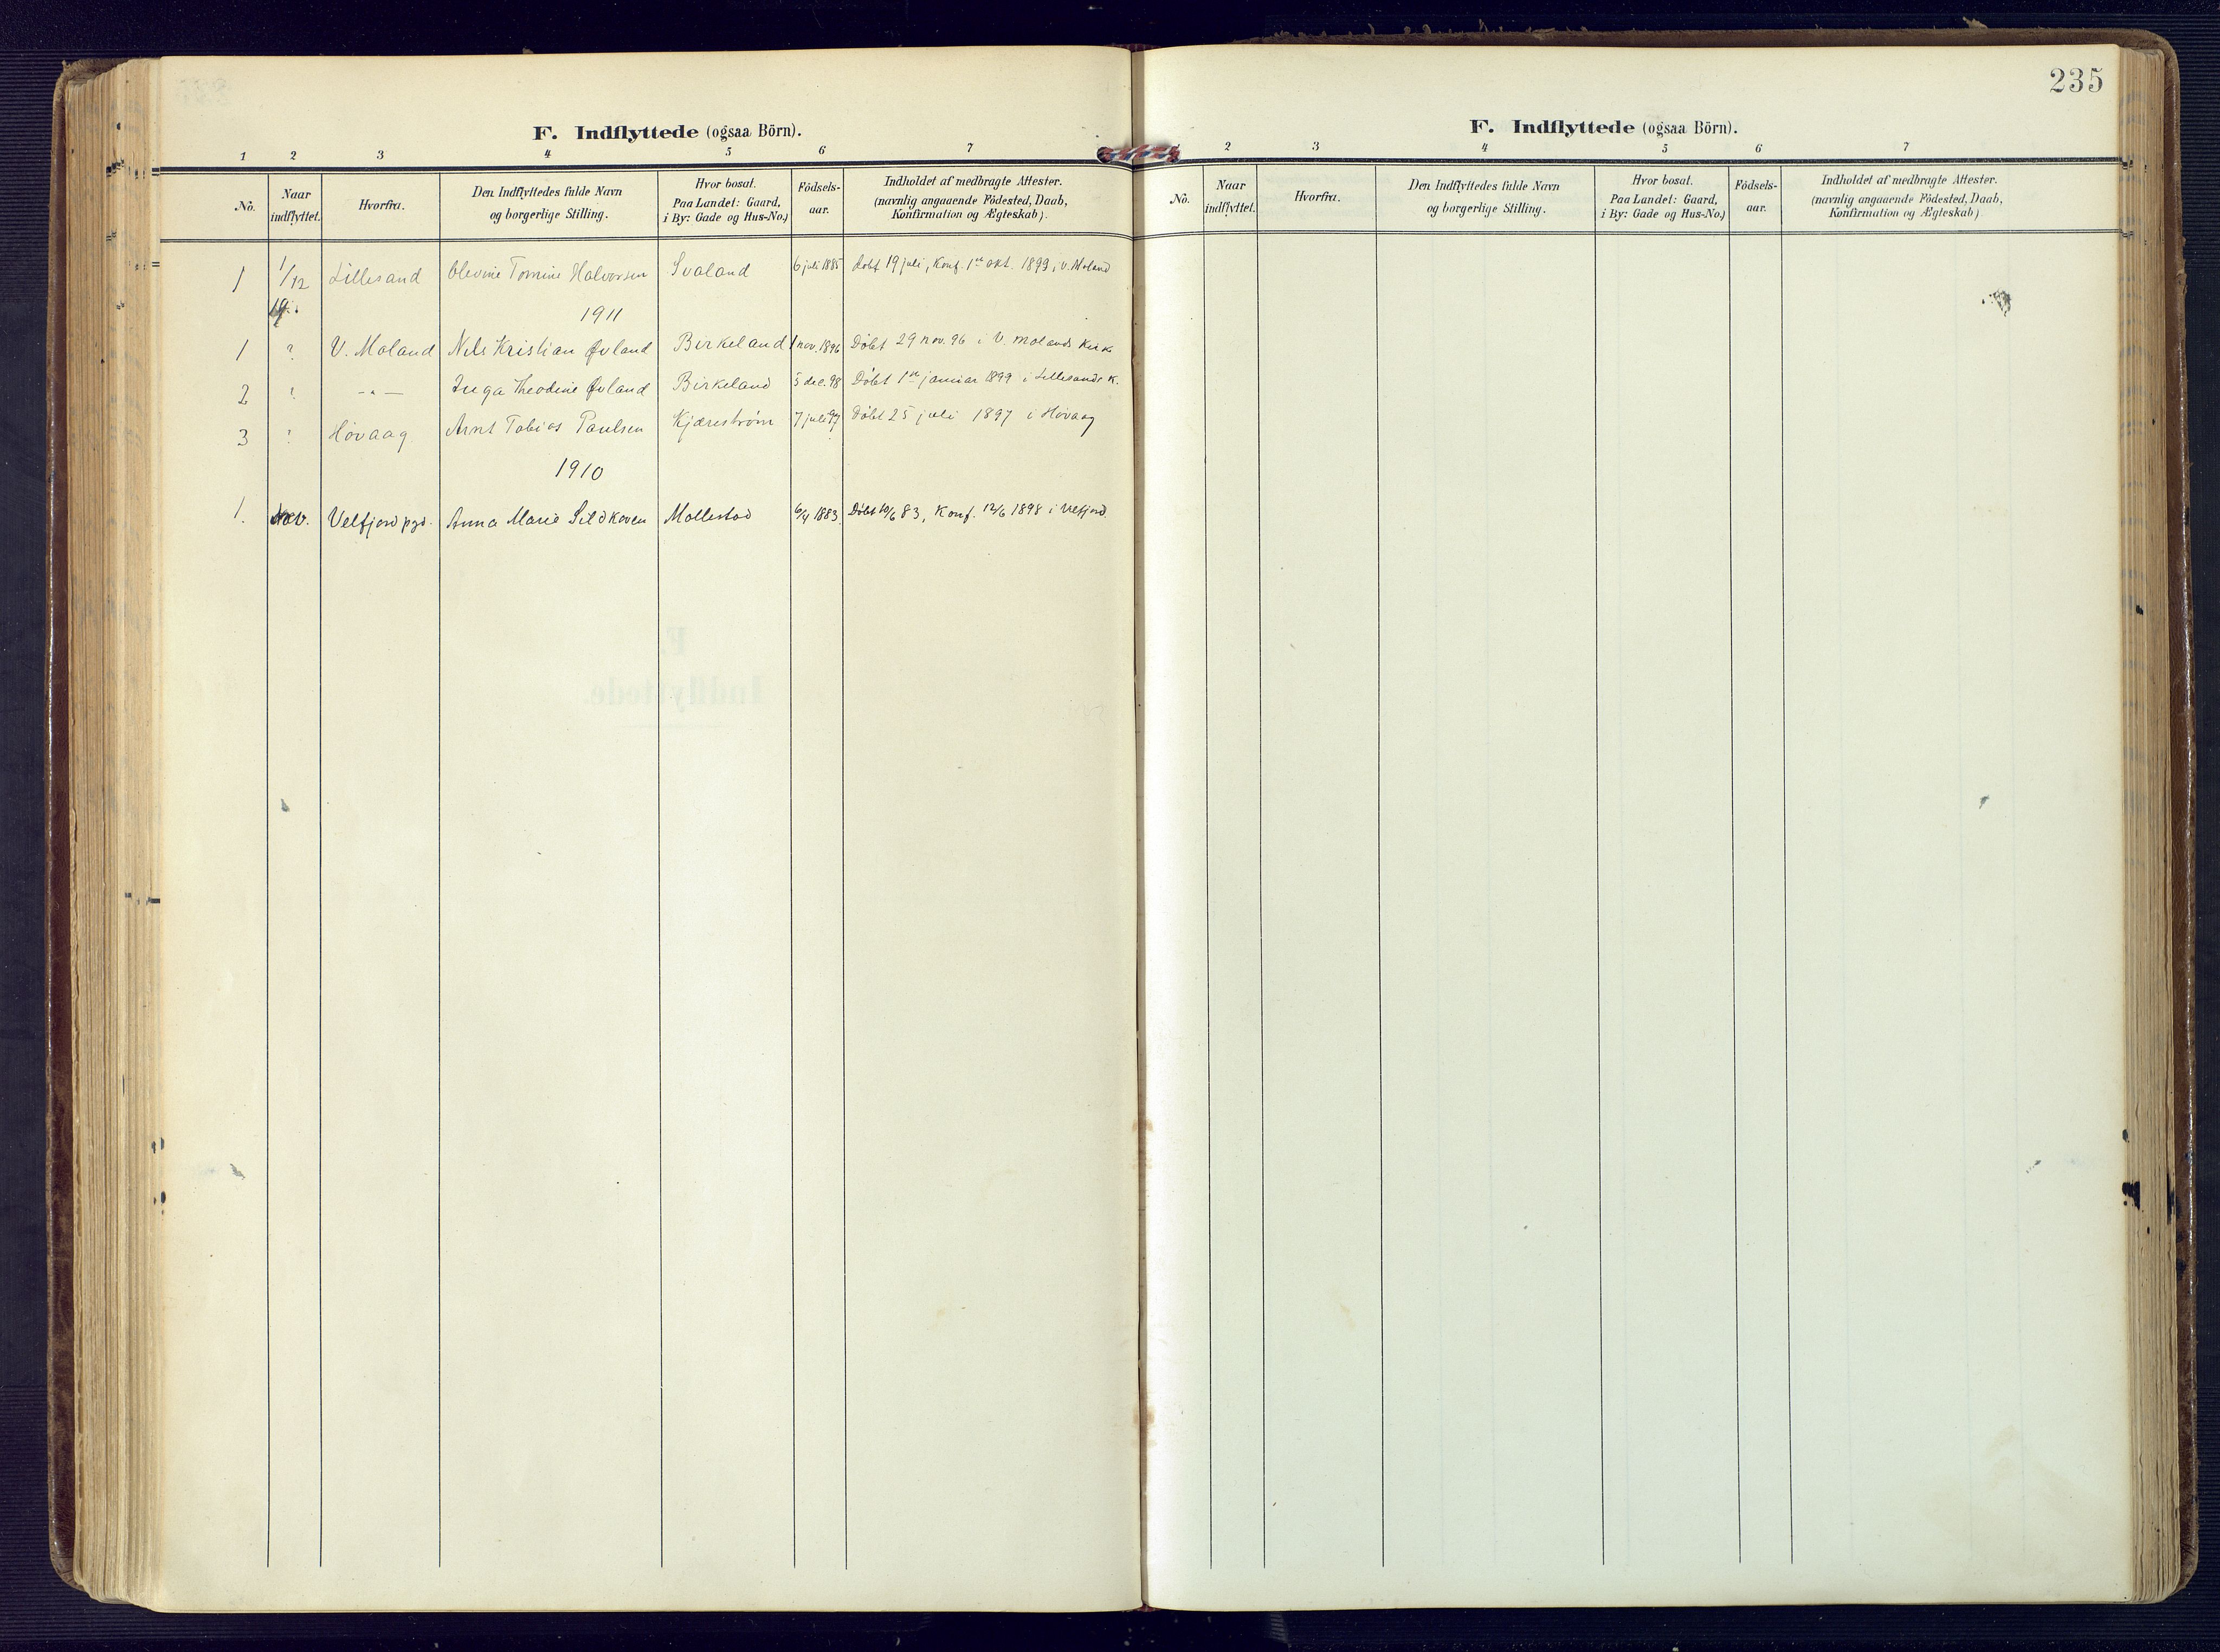 F. Indflyttede (ogsaa Börn).
1 2 3 4 5 6 7
No. Naar indflyttet. Hvorfra. Den Indflyttedes fulde Navn og borgerlige Stilling. Hvor bosat. Paa Landet: Gaard, i By: Gade og Hus-No.) Födsels-aar. Indholdet af medbragte Attester. (navnlig angaaende Födested, Daab, Konfirmation og Ægteskab).
1 1/12 Lillesand Olevine Tomine Halvorsen Svaland 6 juli 1885 döbt 19 juli, Konf. 1ste okt. 1899 i V. Moland
1911
1 ? V. Moland Nils Kristian Øvland Birkeland 1 nov. 1896 Döbt 29 nov. 96 i V. Molands Kirk
2 ? -"- Inga Theodine Øvland Birkeland 5 dec. 98 Döbt 1ste januar 1899 i Lillesands K.
3 ? Hövaag Arnt Tobias Paulsen Kjærestrøm 7 juli 97 Döbt 25 juli 1897 i Hövaag
1910
1. Nov. Velfjord pgd. Anna Marie Sildkoven Mollestad 6/4 1883. Döbt 10/6 83, Konf. 12/6 1898 i Velfjord
235
F. Indflyttede (ogsaa Börn).
2 3 4 5 6 7
No. Naar indflyttet. Hvorfra. Den Indflyttedes fulde Navn og borgerlige Stilling. Hvor bosat. Paa Landet: Gaard, i By: Gade og Hus-No.) Födsels-aar. Indholdet af medbragte Attester. (navnlig angaaende Födested, Daab, Konfirmation og Ægteskab)